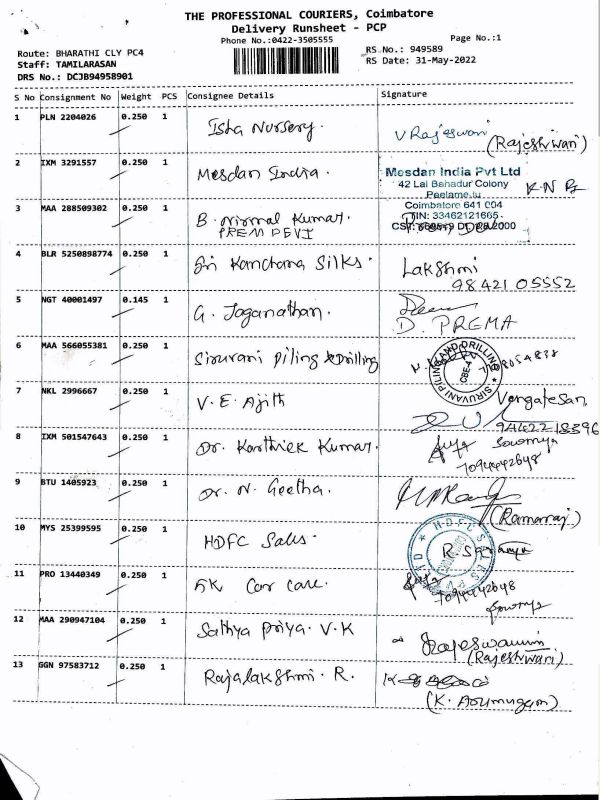 THE PROFESSIONAL COURIERS, Coimbatore
Delivery Runsheet - PCP
Phone No.:0422-3505555
Page No.:1
Route: BHARATHI CLY PC4
RS No.: 949589
Staff: TAMILARASAN
RS Date: 31-May-2022
DRS No.: DCJB94958901
S No Consignment No Weight PCS Consignee Details Signature
1 PLN 2204026 0.250 1 Isha Nursery. V Rajeswari
(Rajeshwari)
2 IXM 3291557 0.250 1 Mesdan India. Mesdan India Pvt Ltd
42 Lal Bahadur Colony
Peelamedu
3 MAA 288509302 0.250 1 B. Nirmal Kumar. Coimbatore 641 004
PREM DEVI TIN: 33462121665
4 BLR 5250898774 0.250 1 Sri Kanchana Silks. Lakshmi
98421 05552
5 NGT 40001497 0.145 1 G. Jaganathan.
D. PREMA
6 MAA 566055381 0.250 1 Siruvani Piling & Drilling SIRUVANI PILING AND DRILLING
CBE-4
7 NKL 2996667 0.250 1 V. E. Ajith Vengatesan
9442218396
8 IXM 501547643 0.250 1 Dr. Karthiek Kumar. Sowmya
7094442648
9 BTU 1405923 0.250 1 Dr. N. Geetha.
(Ramaraj)
10 MYS 25399595 0.250 1 HDFC Sales.
11 PRO 13440349 0.250 1 SK Car care.
7094442648
Sowmya
12 MAA 290947104 0.250 1 Sathya Priya. V. K Rajeswari
(Rajeshwari)
13 GGN 97583712 0.250 1 Rajalakshmi. R.
(K. Arumugam)